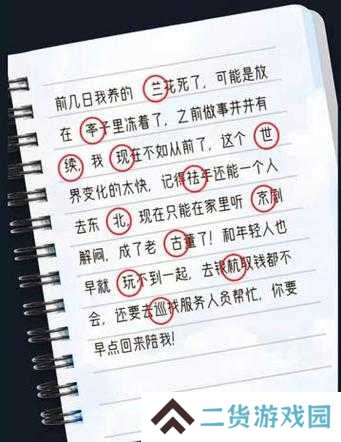 前几日我养的 兰花死了，可能是放
在 子里冻着了，之前做事井井有
续，我 现在不如从前了，这个 世
界变化的太快，记得祛年还能一个人
去东 北，现在只能在家里听 京剧
解闷，成了老 古董了！和年轻人也
早就 玩不到一起，去银杭取钱都不
会，还要去巡找服务人员帮忙，你要
早点回来陪我！
二货游戏园